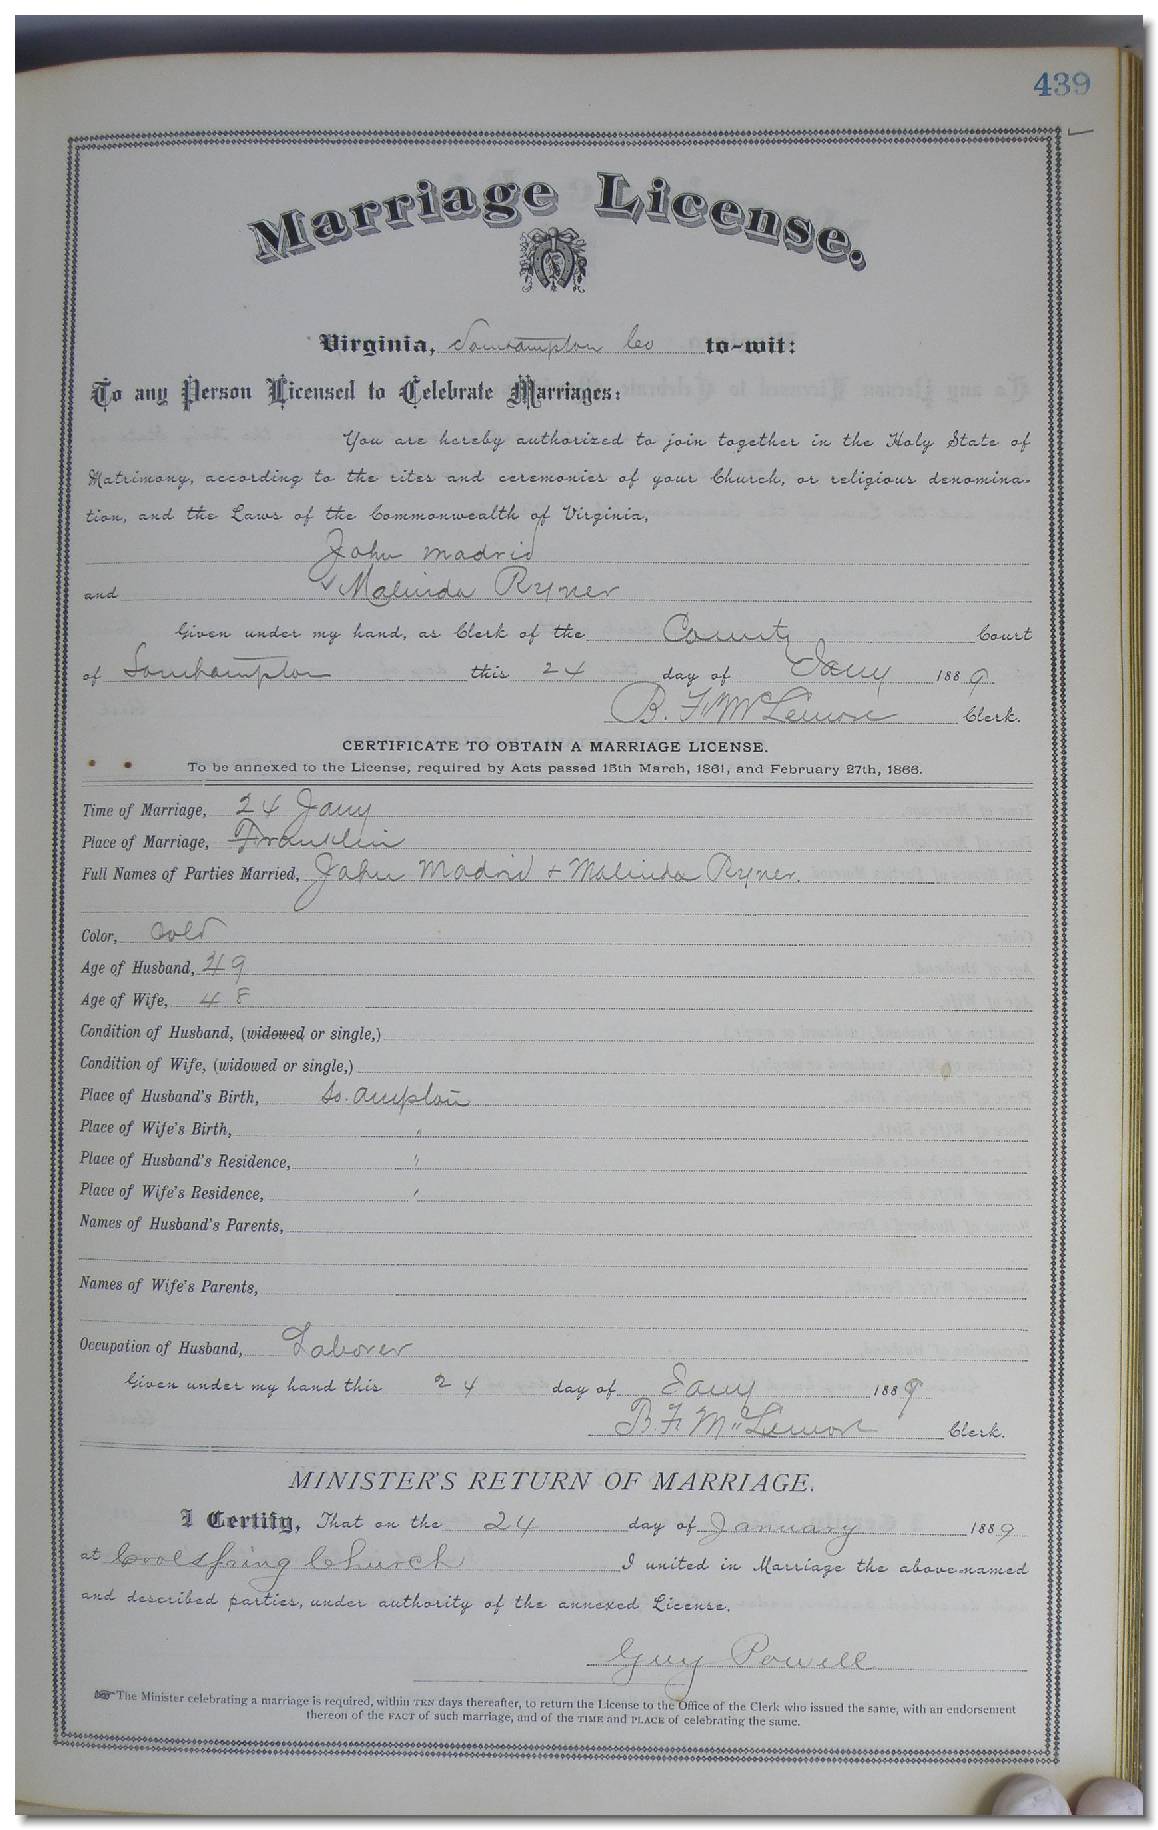 439
Marriage License.
Virginia, Southampton Co to-wit:
To any Person Licensed to Celebrate Marriages:
You are hereby authorized to join together in the Holy State of
Matrimony, according to the rites and ceremonies of your Church, or religious denomina-
tion, and the Laws of the Commonwealth of Virginia,
John Madrid
and Malinda Ryner
Given under my hand, as Clerk of the County Court
of Southampton this 24 day of Jany 1889
B. F. McLemore Clerk.
CERTIFICATE TO OBTAIN A MARRIAGE LICENSE.
To be annexed to the License, required by Acts passed 15th March, 1861, and February 27th, 1866.
Time of Marriage, 24 Jany
Place of Marriage, Franklin
Full Names of Parties Married, John Madrid + Malinda Ryner.
Color, Cold
Age of Husband, 49
Age of Wife, 48
Condition of Husband, (widowed or single,)
Condition of Wife, (widowed or single,)
Place of Husband's Birth, So.ampton
Place of Wife's Birth, "
Place of Husband's Residence, "
Place of Wife's Residence, "
Names of Husband's Parents,
Names of Wife's Parents,
Occupation of Husband, Laborer
Given under my hand this 24 day of Jany 1889
B. F. McLemore Clerk.
MINISTER'S RETURN OF MARRIAGE.
I Certify, That on the 24 day of January 1889
at Coolspring Church I united in Marriage the above-named
and described parties, under authority of the annexed License.
Guy Powell
The Minister celebrating a marriage is required, within TEN days thereafter, to return the License to the Office of the Clerk who issued the same, with an endorsement
thereon of the FACT of such marriage, and of the TIME and PLACE of celebrating the same.